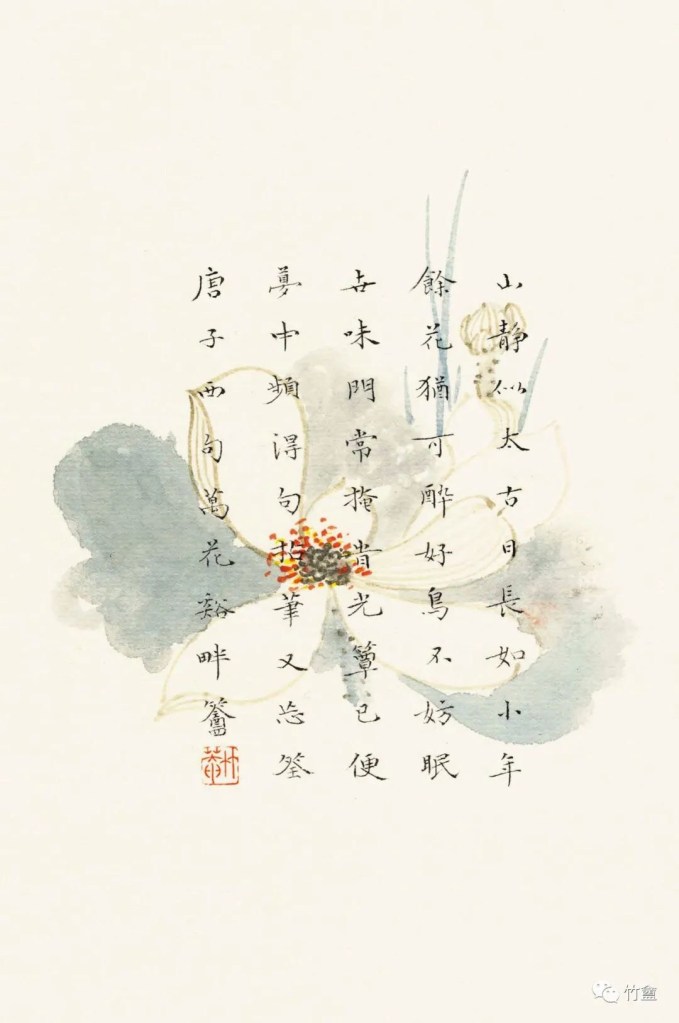 山靜似太古日長如小年
餘花猶可醉好鳥不妨眠
世味門常掩旹光簟已便
夢中頻得句拈筆又忘筌
唐子西句萬花谿畔
竹盦